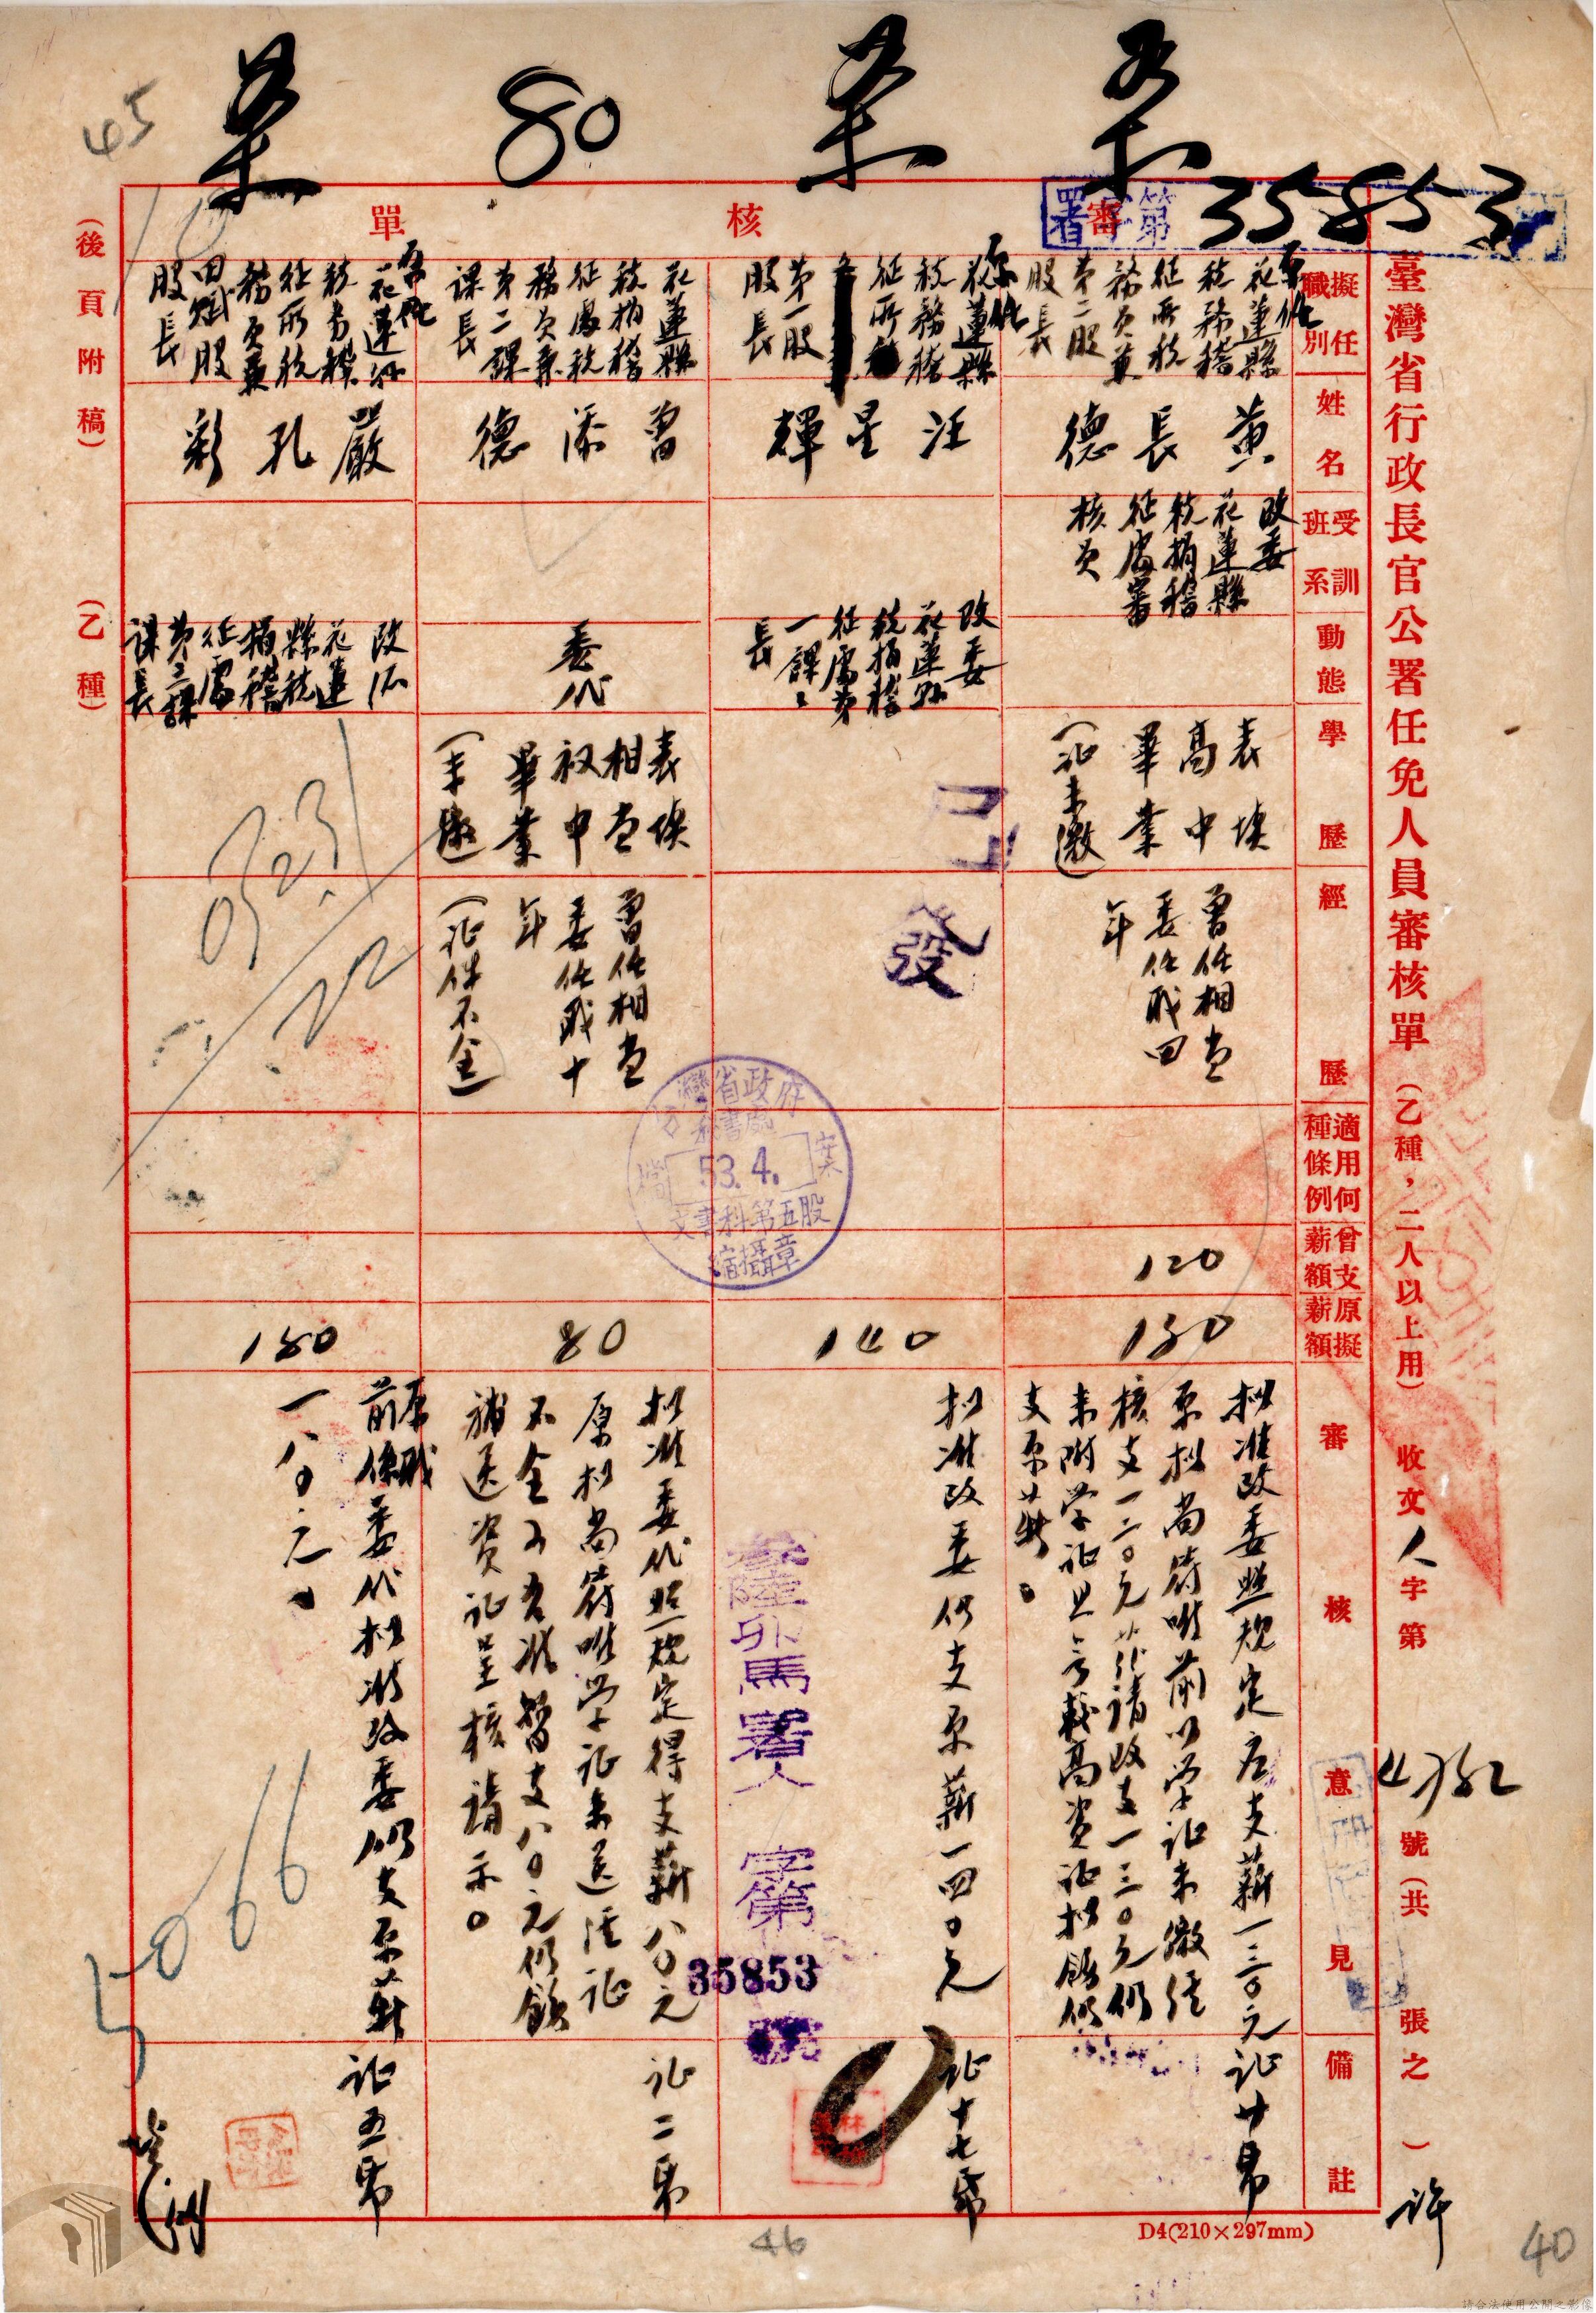 臺灣省行政長官公署任免人員審核單(乙種，二人以上用) 收文人字第 號(共 張之 )
許
署字第35853
審核單
擬任職別
姓名
受訓班系
動態
學歷
經歷
適用何種條例
曾支薪額
原擬薪額
審核意見
備註
原任
花蓮縣
稅務稽
征所稅
務員兼
第二股
股長
黃長德
改委
花蓮縣
稅捐稽
征處審
核員
表填
高中
畢業
(証未繳)
曾任相當
委任職四
年
120
130
拟准改委照規定应支薪一三〇元
原拟尚符唯前以学証未繳經
核支一二〇元茲請改支一三〇元仍
未附学証且無載高資証拟飭仍
支原薪。
証廿帋
原任
花蓮縣
稅務稽
征所
第一股
股長
汪星輝
改委
花蓮縣
稅捐稽
征處第
一課課
長
140
拟准改委仍支原薪一四〇元
証十七帋
花蓮縣
稅捐稽
征處稅
務員兼
第二課
課長
曾添德
委代
表填
相當
初中
畢業
(未繳)
曾任相當
委任職十
年
(証件不全)
80
80
拟准委代照規定得支薪八〇元
原拟尚符唯学証未送經証
不全可否准暫支八〇元仍飭
補送資証呈核請示。
証二帋
原任
花蓮縣
稅務稽
征所稅
務員兼
田賦股
股長
嚴孔彩
改派
花蓮
縣稅
捐稽
征處
第三課
課長
180
原職
前係委代拟准改委仍支原薪
一八〇元。
証五帋
已發
臺灣省政府
秘書處
檔案
53.4.
文書科第五股
縮攝章
參陸卯馬署人字第
35853
號
(後頁附稿)
(乙種)
45
5066
46
40
D4(210×297mm)
請合法使用公開之影像